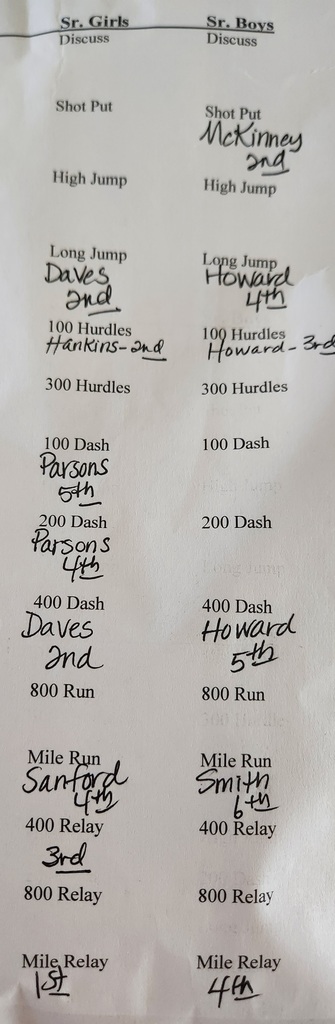 Sr. Girls Sr. Boys
Discuss Discuss
Shot Put Shot Put
McKinney
2nd
High Jump High Jump
Long Jump Long Jump
Daves Howard
2nd 4th
100 Hurdles 100 Hurdles
Hankins-2nd Howard-3rd
300 Hurdles 300 Hurdles
100 Dash 100 Dash
Parsons
5th
200 Dash 200 Dash
Parsons
4th
400 Dash 400 Dash
Daves Howard
2nd 5th
800 Run 800 Run
Mile Run Mile Run
Sanford Smith
4th 6th
400 Relay 400 Relay
3rd
800 Relay 800 Relay
Mile Relay Mile Relay
1st 4th